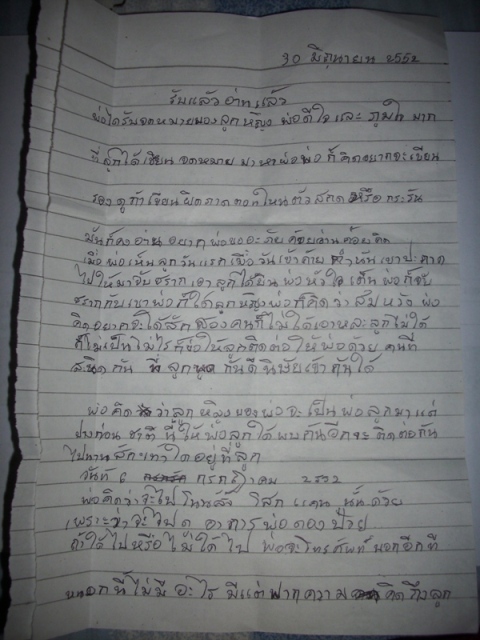 30 มิถุนายน 2552
รับแล้วอ่านแล้ว
พ่อได้รับจดหมายของลูกหญิง พ่อดีใจและ ภูมใจ มาก
ที่ลูกได้เขียน จดหมาย มาหาพ่อพ่อ ก็คิดอยากจะเขียน
รองดูถ้าเขียนผิดภาดตอนใหนตัวสกด หรือ การัน
มันก็คงอ่าน อยาก พ่อขออะภัยค่อยอ่านค่อยคิด
เมื่อพ่อเห็นลูกวันแรก เมื่อวันเข้าค่าย
ไปให้มาจับฉราก เอาลูกได้ พ่อหัวใจเต้น พ่อก็จับ
ฉรากกับเขาพ่อก็ได้ลูกหญิงพ่อก็คิดว่าสมหวัง พ่อ
คิดอยากจะได้สักสองคนก็ไม่ได้เอาหละลูกไม่ได้
ก็ไม่เป็นไม่ไร ให้ลูกติดต่อให้พ่อด้วย คนที่
สะนิดกัน ที่ ลูกพูด กันดีนิษัยเข้ากันได้
พ่อคิดว่าลูกหญิงของพ่อจะเป็นพ่อลูกมาแต่
ปางก่อน ชาตินี้ให้พ่อลูกได้พบกันอีกจะติดต่อกัน
ไปนานสักเท่าใดอยู่ที่ลูก
วันที่ 6 กรกฎาคม 2552
พ่อคิดว่าจะไปโนนสัง โสก แคน นั้นด้วย
เพราะว่าจะไปดู อาการพ่อดองป่วย
ถ้าได้ไปหรือไม่ได้ไป พ่อจะโทรศัพท์ บอกอีกที
นอกนี้ไม่มีอะไร มีแต่ฝากความ คิดถึงลูก